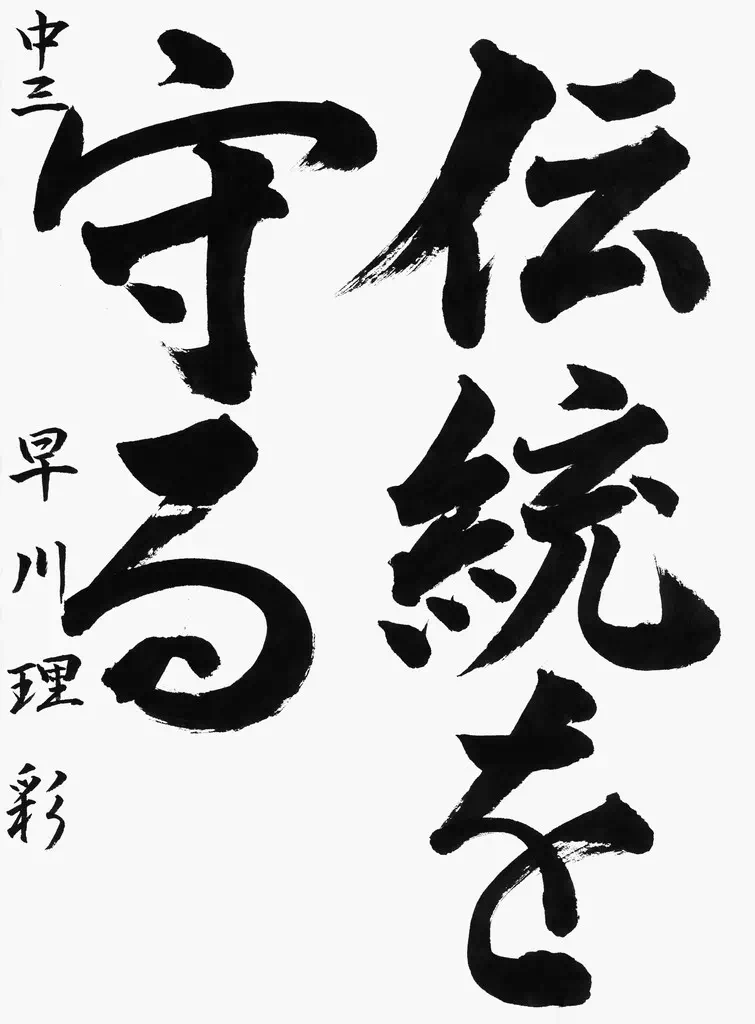 伝統を
守る
中三 早川理彩